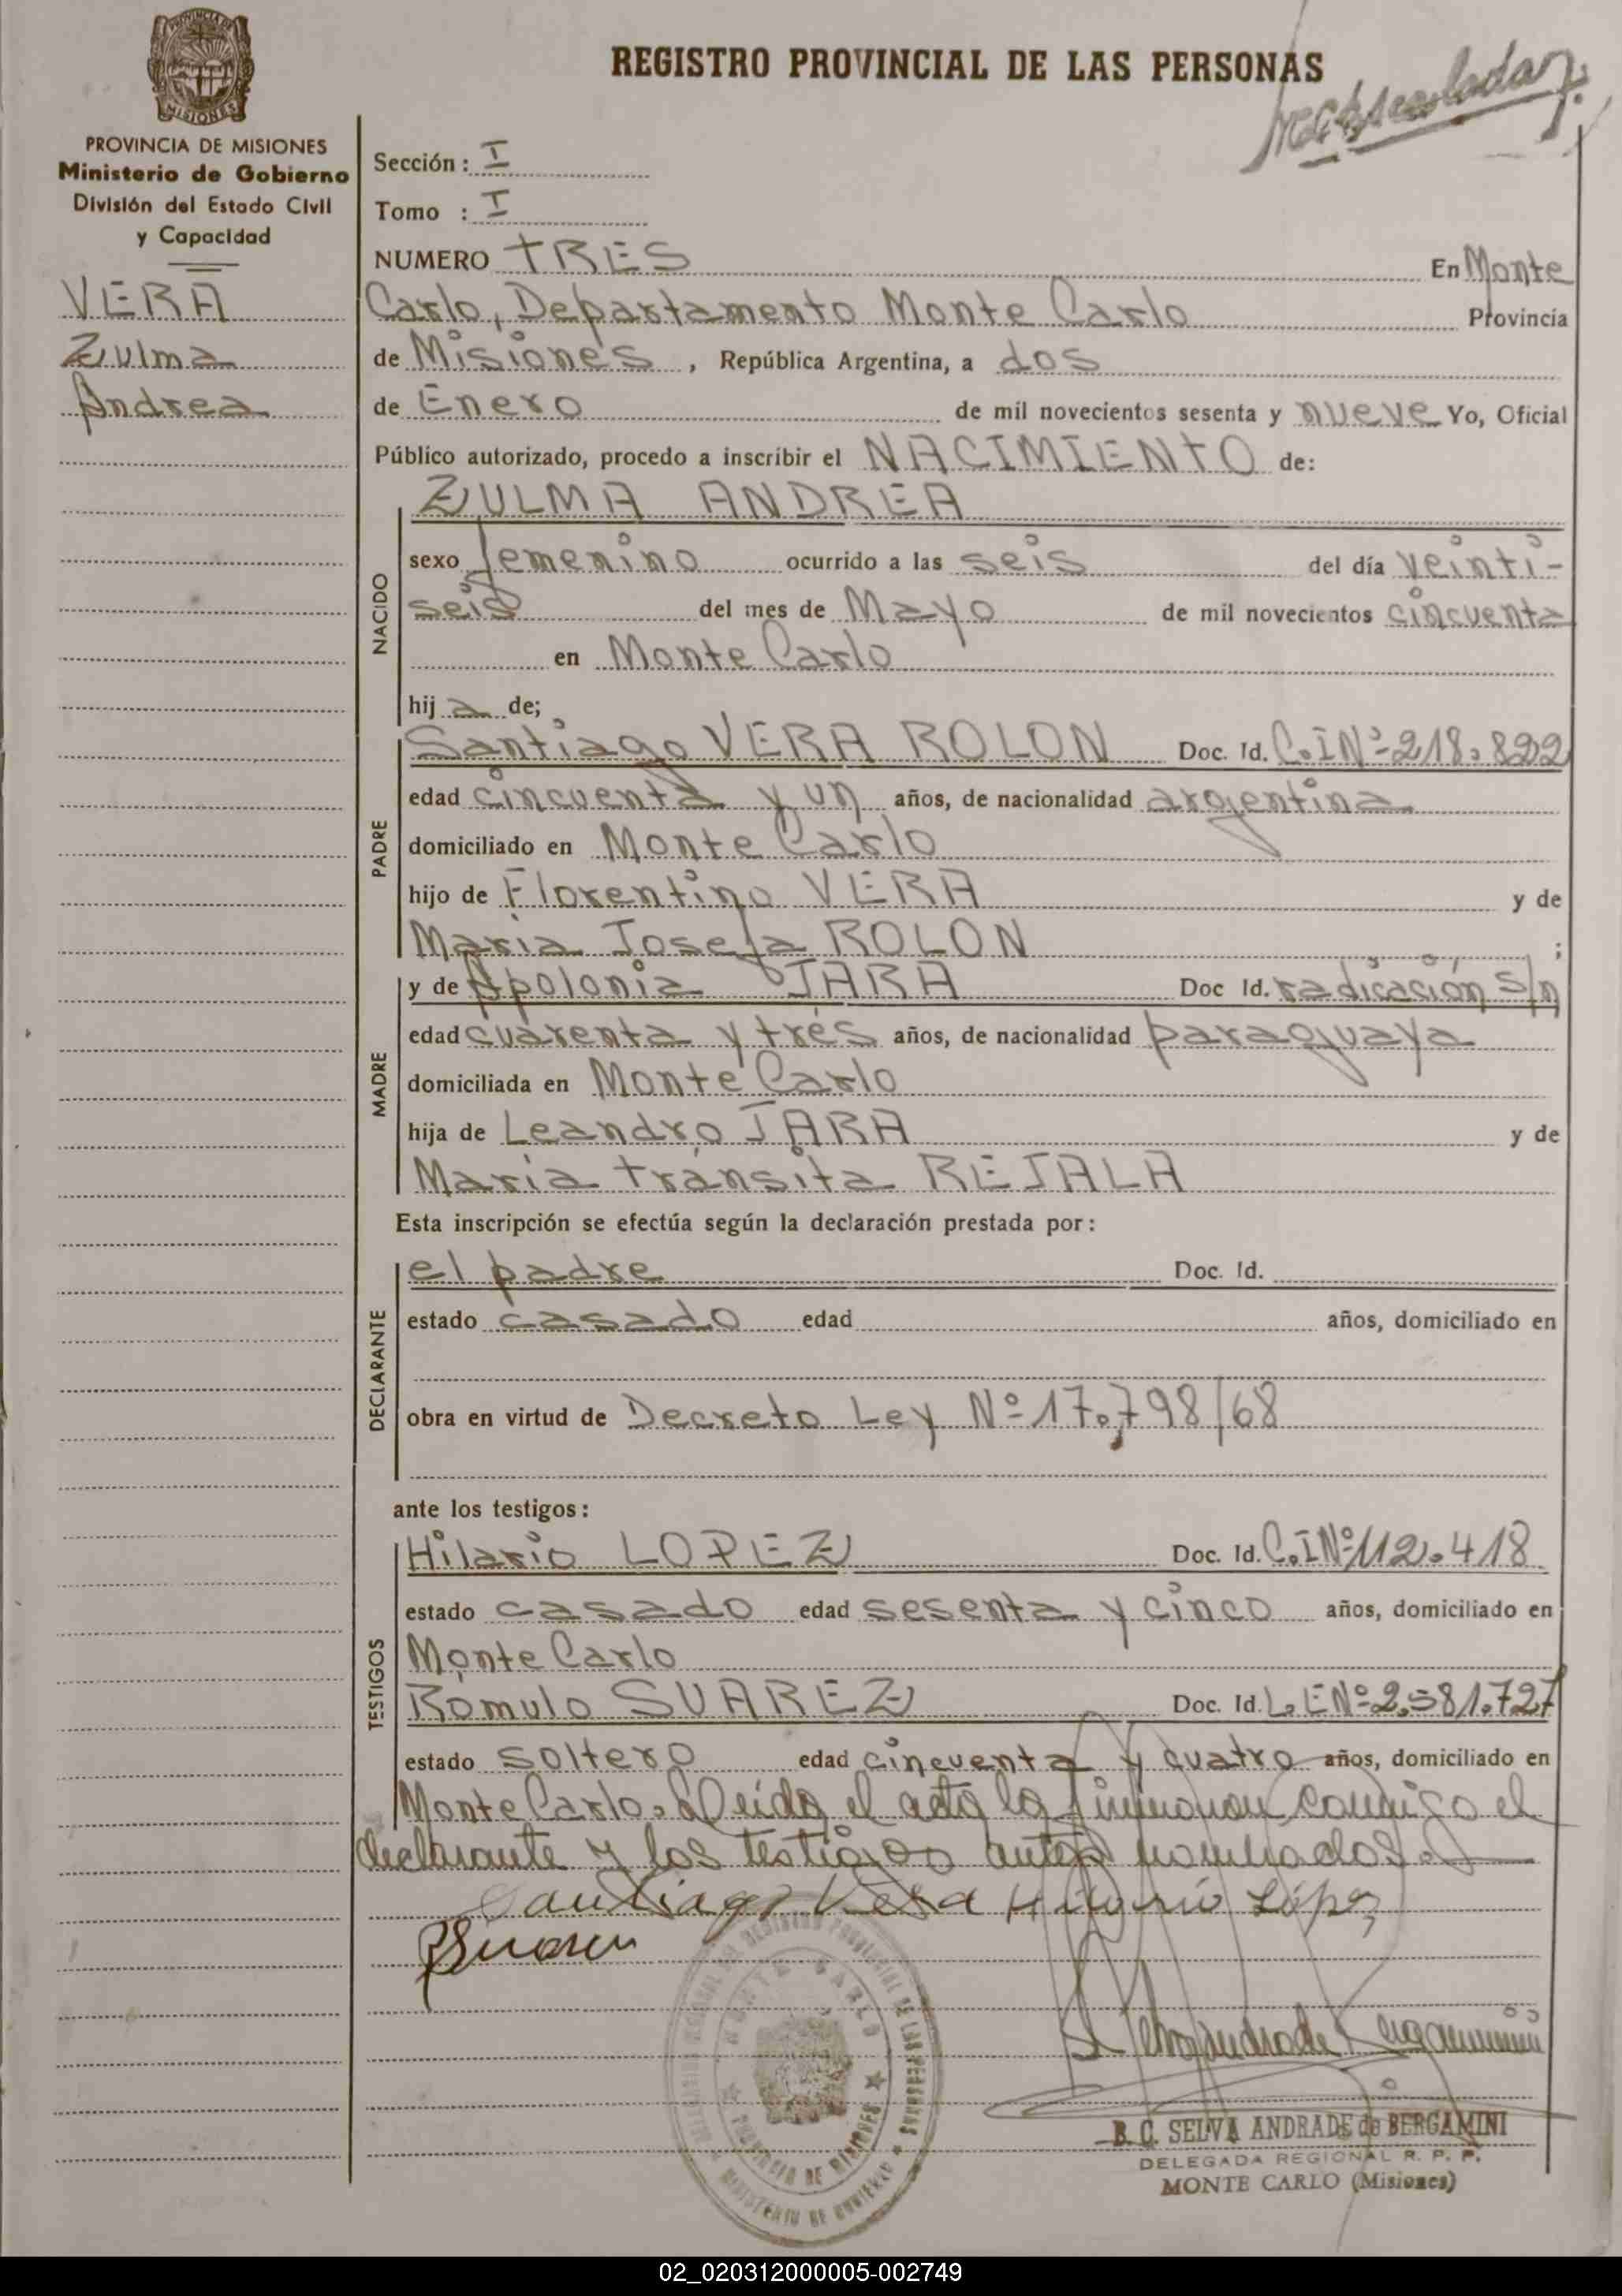 REGISTRO PROVINCIAL DE LAS PERSONAS
PROVINCIA DE MISIONES
Ministerio de Gobierno
División del Estado Civil
y Capacidad
VERA
Zulma
Andrea
Sección: I
Tomo : I
NUMERO TRES En Monte
Carlo, Departamento Monte Carlo Provincia
de Misiones, República Argentina, a dos
de Enero de mil novecientos sesenta y nueve Yo, Oficial
Público autorizado, procedo a inscribir el NACIMIENTO de:
NACIDO
ZULMA ANDREA
sexo femenino ocurrido a las seis del día veinti-
seis del mes de Mayo de mil novecientos cincuenta
en Monte Carlo
hija de;
PADRE
Santiago VERA ROLON Doc. Id. C.I Nº 218.822
edad cincuenta y un años, de nacionalidad argentina
domiciliado en Monte Carlo
hijo de Florentino VERA y de
Maria Josefa ROLON ;
MADRE
y de Apolonia JARA Doc Id. radicación s/n
edad cuarenta y tres años, de nacionalidad paraguaya
domiciliada en Monte Carlo
hija de Leandro JARA y de
Maria tránsita REJALA
Esta inscripción se efectúa según la declaración prestada por:
DECLARANTE
el padre Doc. Id.
estado casado edad años, domiciliado en
obra en virtud de Decreto Ley Nº 17.798/68
ante los testigos:
TESTIGOS
Hilario LOPEZ Doc. Id. C.I Nº 112.418
estado casado edad sesenta y cinco años, domiciliado en
Monte Carlo
Rómulo SUAREZ Doc. Id. L.E Nº 2.581.727
estado soltero edad cincuenta y cuatro años, domiciliado en
Monte Carlo. Leída el acta la firmaron conmigo el
declarante y los testigos antes nombrados.
Santiago Vera Hilario López
RSuarez
B. C. SELVA ANDRADE de BERGAMINI
DELEGADA REGIONAL R. P. P.
MONTE CARLO (Misiones)
02_020312000005-002749